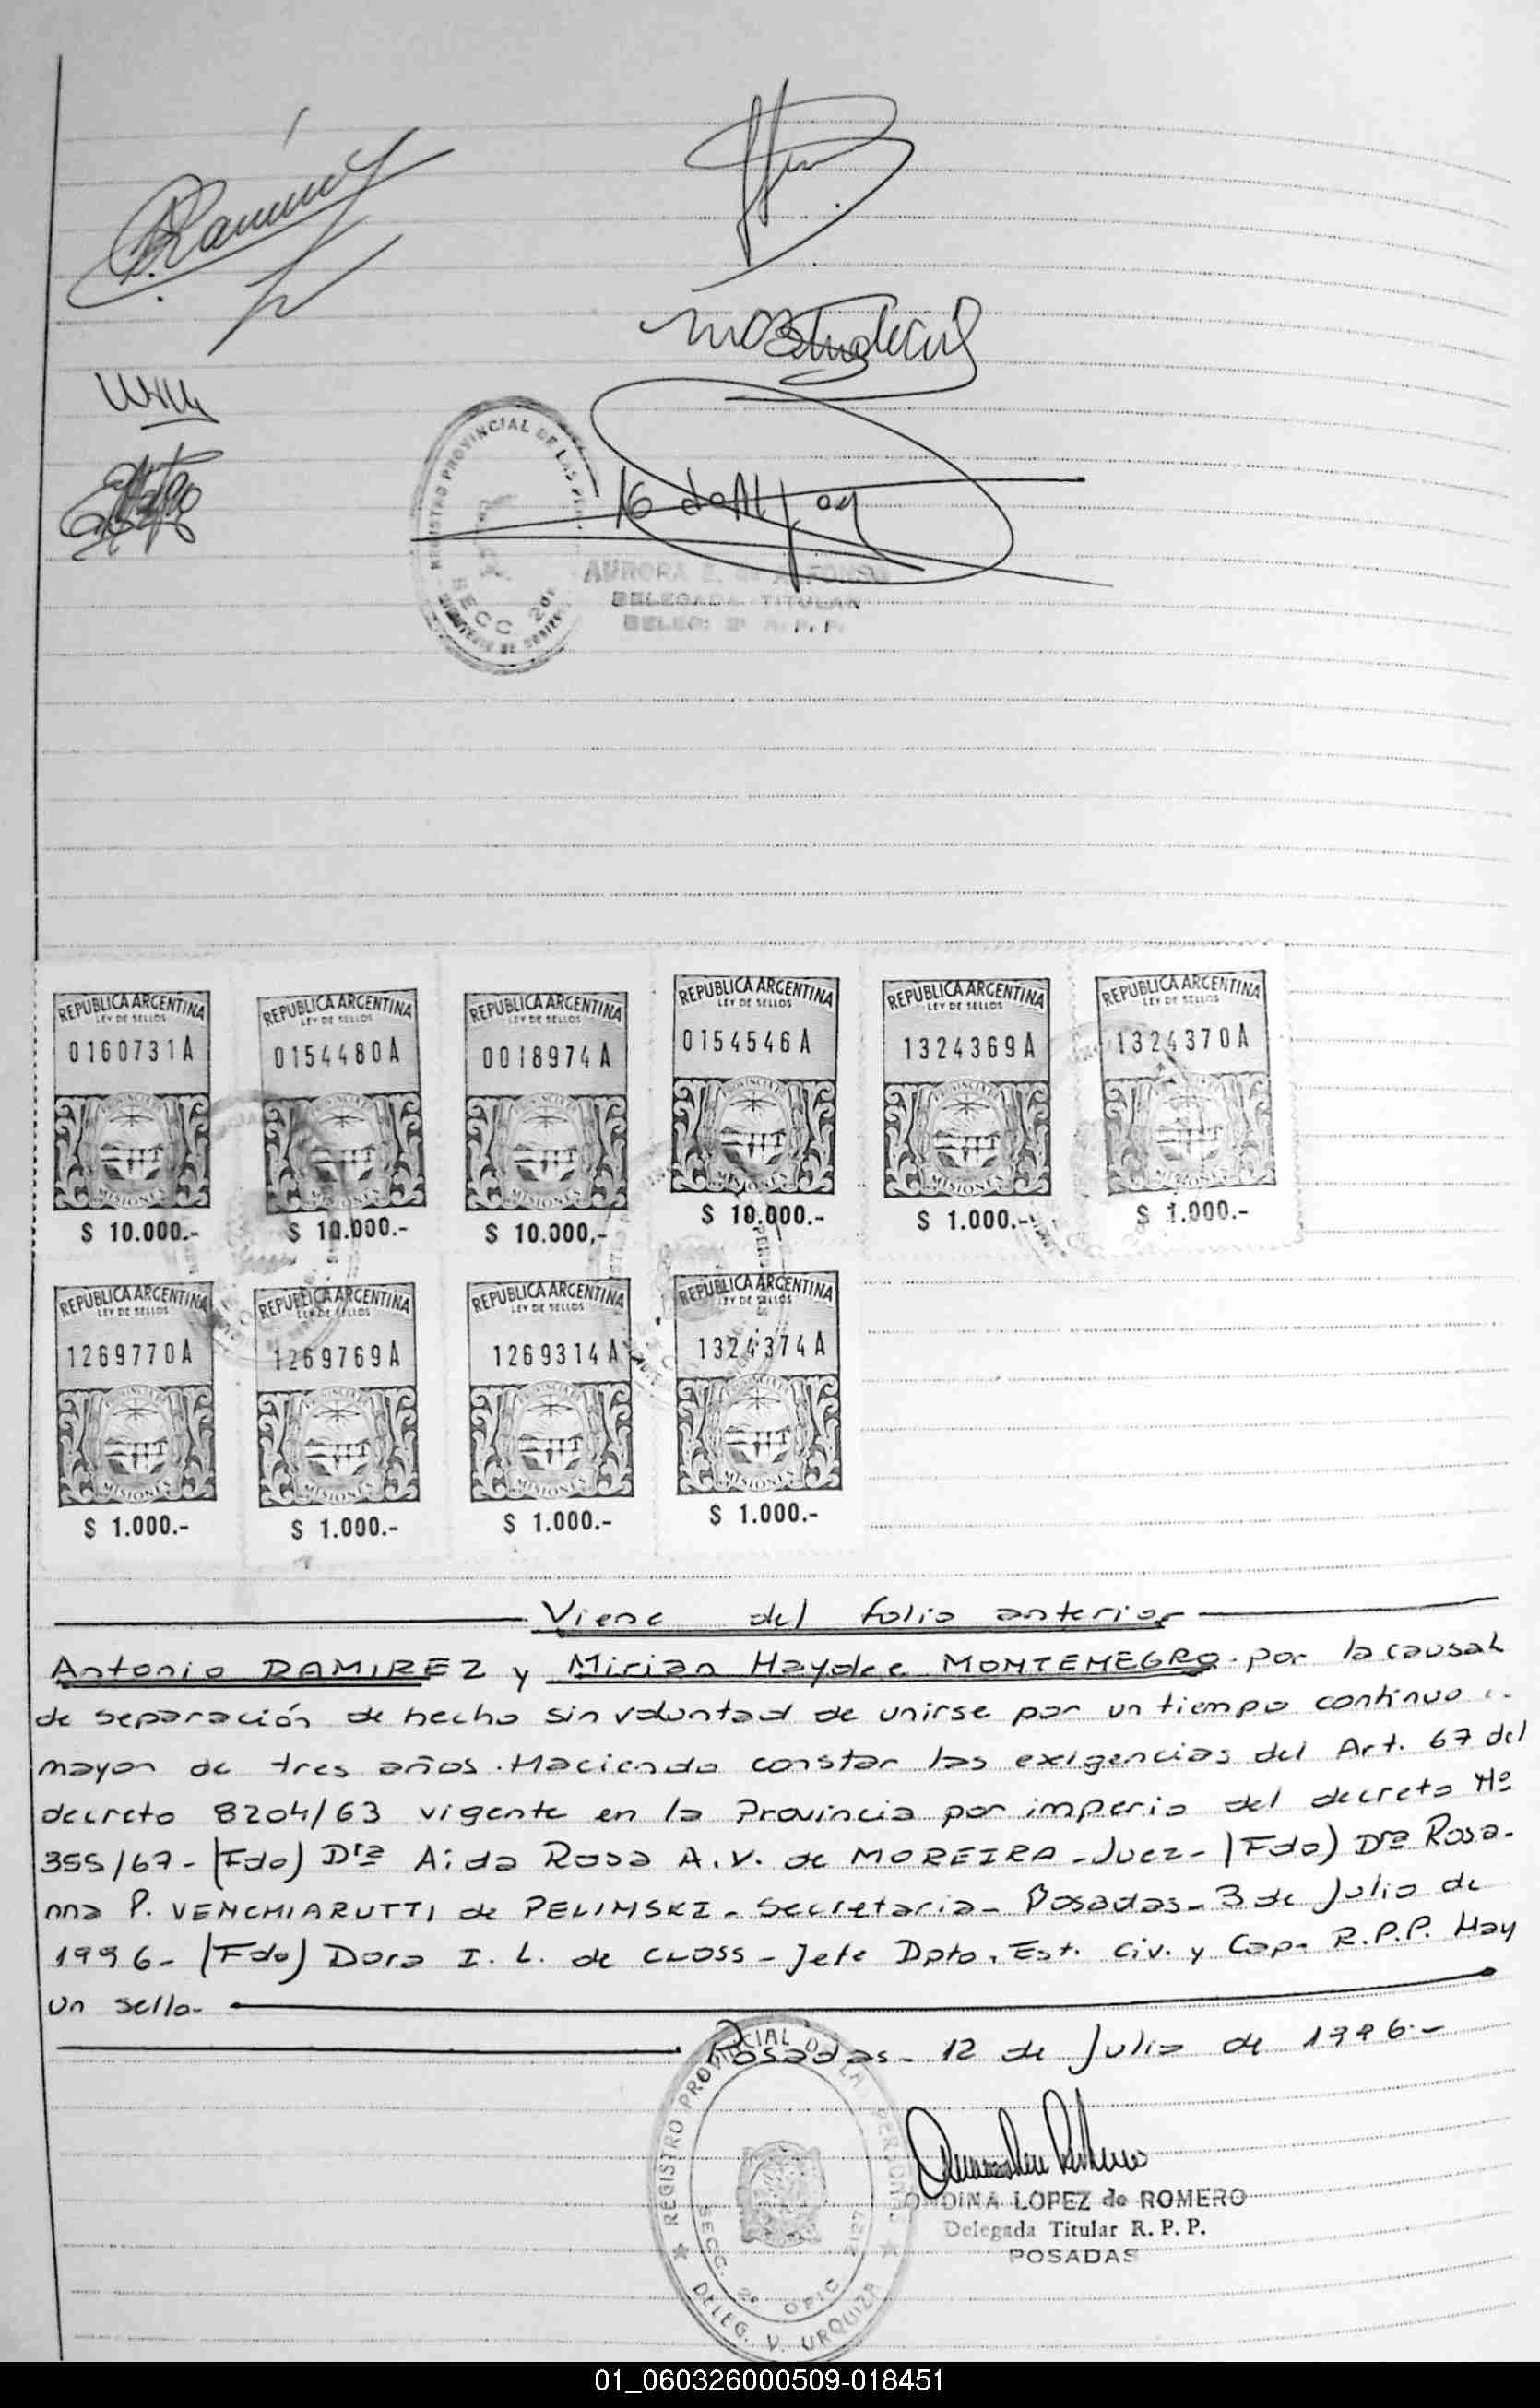 Ramirez
REGISTRO PROVINCIAL DE LAS
SECC 2da
AURORA E. de ALFONSO
DELEGADA TITULAR
DELEG. 2ª R. P. P.
REPUBLICA ARGENTINA REPUBLICA ARGENTINA REPUBLICA ARGENTINA REPUBLICA ARGENTINA REPUBLICA ARGENTINA REPUBLICA ARGENTINA
LEY DE SELLOS LEY DE SELLOS LEY DE SELLOS LEY DE SELLOS LEY DE SELLOS LEY DE SELLOS
0160731A 0154480A 0018974A 0154546A 1324369A 1324370A
MISIONES MISIONES MISIONES MISIONES MISIONES MISIONES
$ 10.000.- $ 10.000.- $ 10.000,- $ 10.000.- $ 1.000.- $ 1.000.-
REPUBLICA ARGENTINA REPUBLICA ARGENTINA REPUBLICA ARGENTINA REPUBLICA ARGENTINA
LEY DE SELLOS LEY DE SELLOS LEY DE SELLOS LEY DE SELLOS
1269770A 1269769A 1269314A 1324374A
MISIONES MISIONES MISIONES MISIONES
$ 1.000.- $ 1.000.- $ 1.000.- $ 1.000.-
Viene del folio anterior
Antonio RAMIREZ y Mirian Haydee MONTENEGRO por la causal
de separación de hecho sin voluntad de unirse por un tiempo continuo
mayor de tres años. Haciendo constar las exigencias del Art. 67 del
decreto 8204/63 vigente en la Provincia por imperio del decreto Nº
355/67- (Fdo) Drª Aida Rosa A. V. de MOREIRA - Juez - (Fdo) Drª Rosa-
nna P. VENCHIARUTTI de PELINSKI - Secretaria - Posadas - 3 de Julio de
1996 - (Fdo) Dora I. L. de CLOSS - Jefe Dpto. Est. Civ. y Cap. R.P.P. Hay
un sello.
Posadas - 12 de Julio de 1996.-
REGISTRO PROVINCIAL DE LA PERSONAS
SECC. 2ª OFIC 2127
DELEG. V. URQUIZA
ONDINA LOPEZ de ROMERO
Delegada Titular R. P. P.
POSADAS
01_060326000509-018451